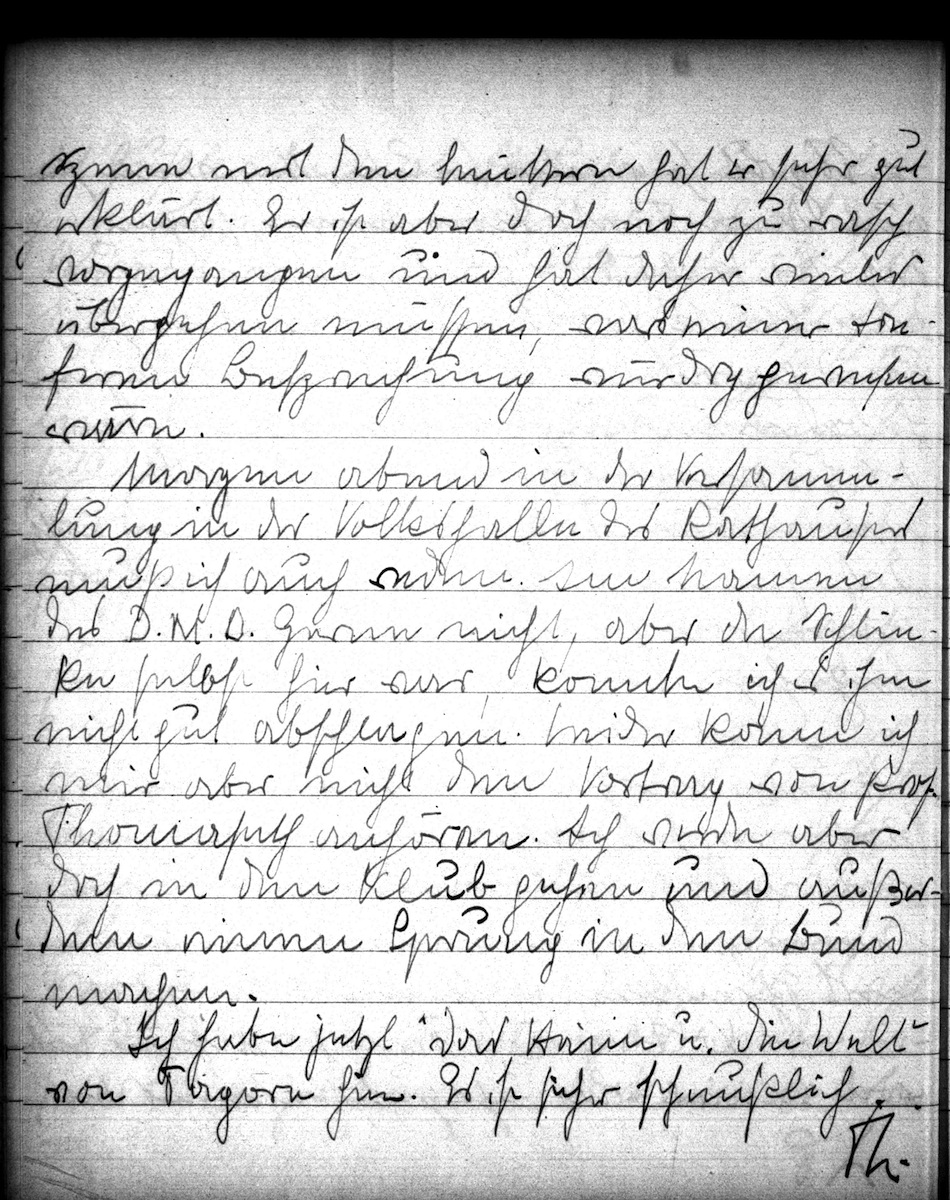 Szene mit den Müttern hat er sehr gut
erklärt. Er ist aber doch noch zu rasch
vorgegangen und hat daher vieles
übergehen müssen, was einer
Besprechung würdig gewesen
wäre.
Morgen abend in der Versamm-
lung in der Volkshalle des Rathauses
muß ich auch reden. Im Namen
des D.M.B. Gerne nicht, aber da Schlin-
ke selbst hier war, konnte ich es ihm
nicht gut abschlagen. Leider kann ich
mir aber nicht den Vortrag von Prof.
Thomaseth anhören. Ich werde aber
doch in den Klub gehen und außer-
dem einen Sprung in den Bund
machen.
Ich habe jetzt "das Heim u. die Welt"
von Tagore hier. Es ist sehr scheußlich.
Th.